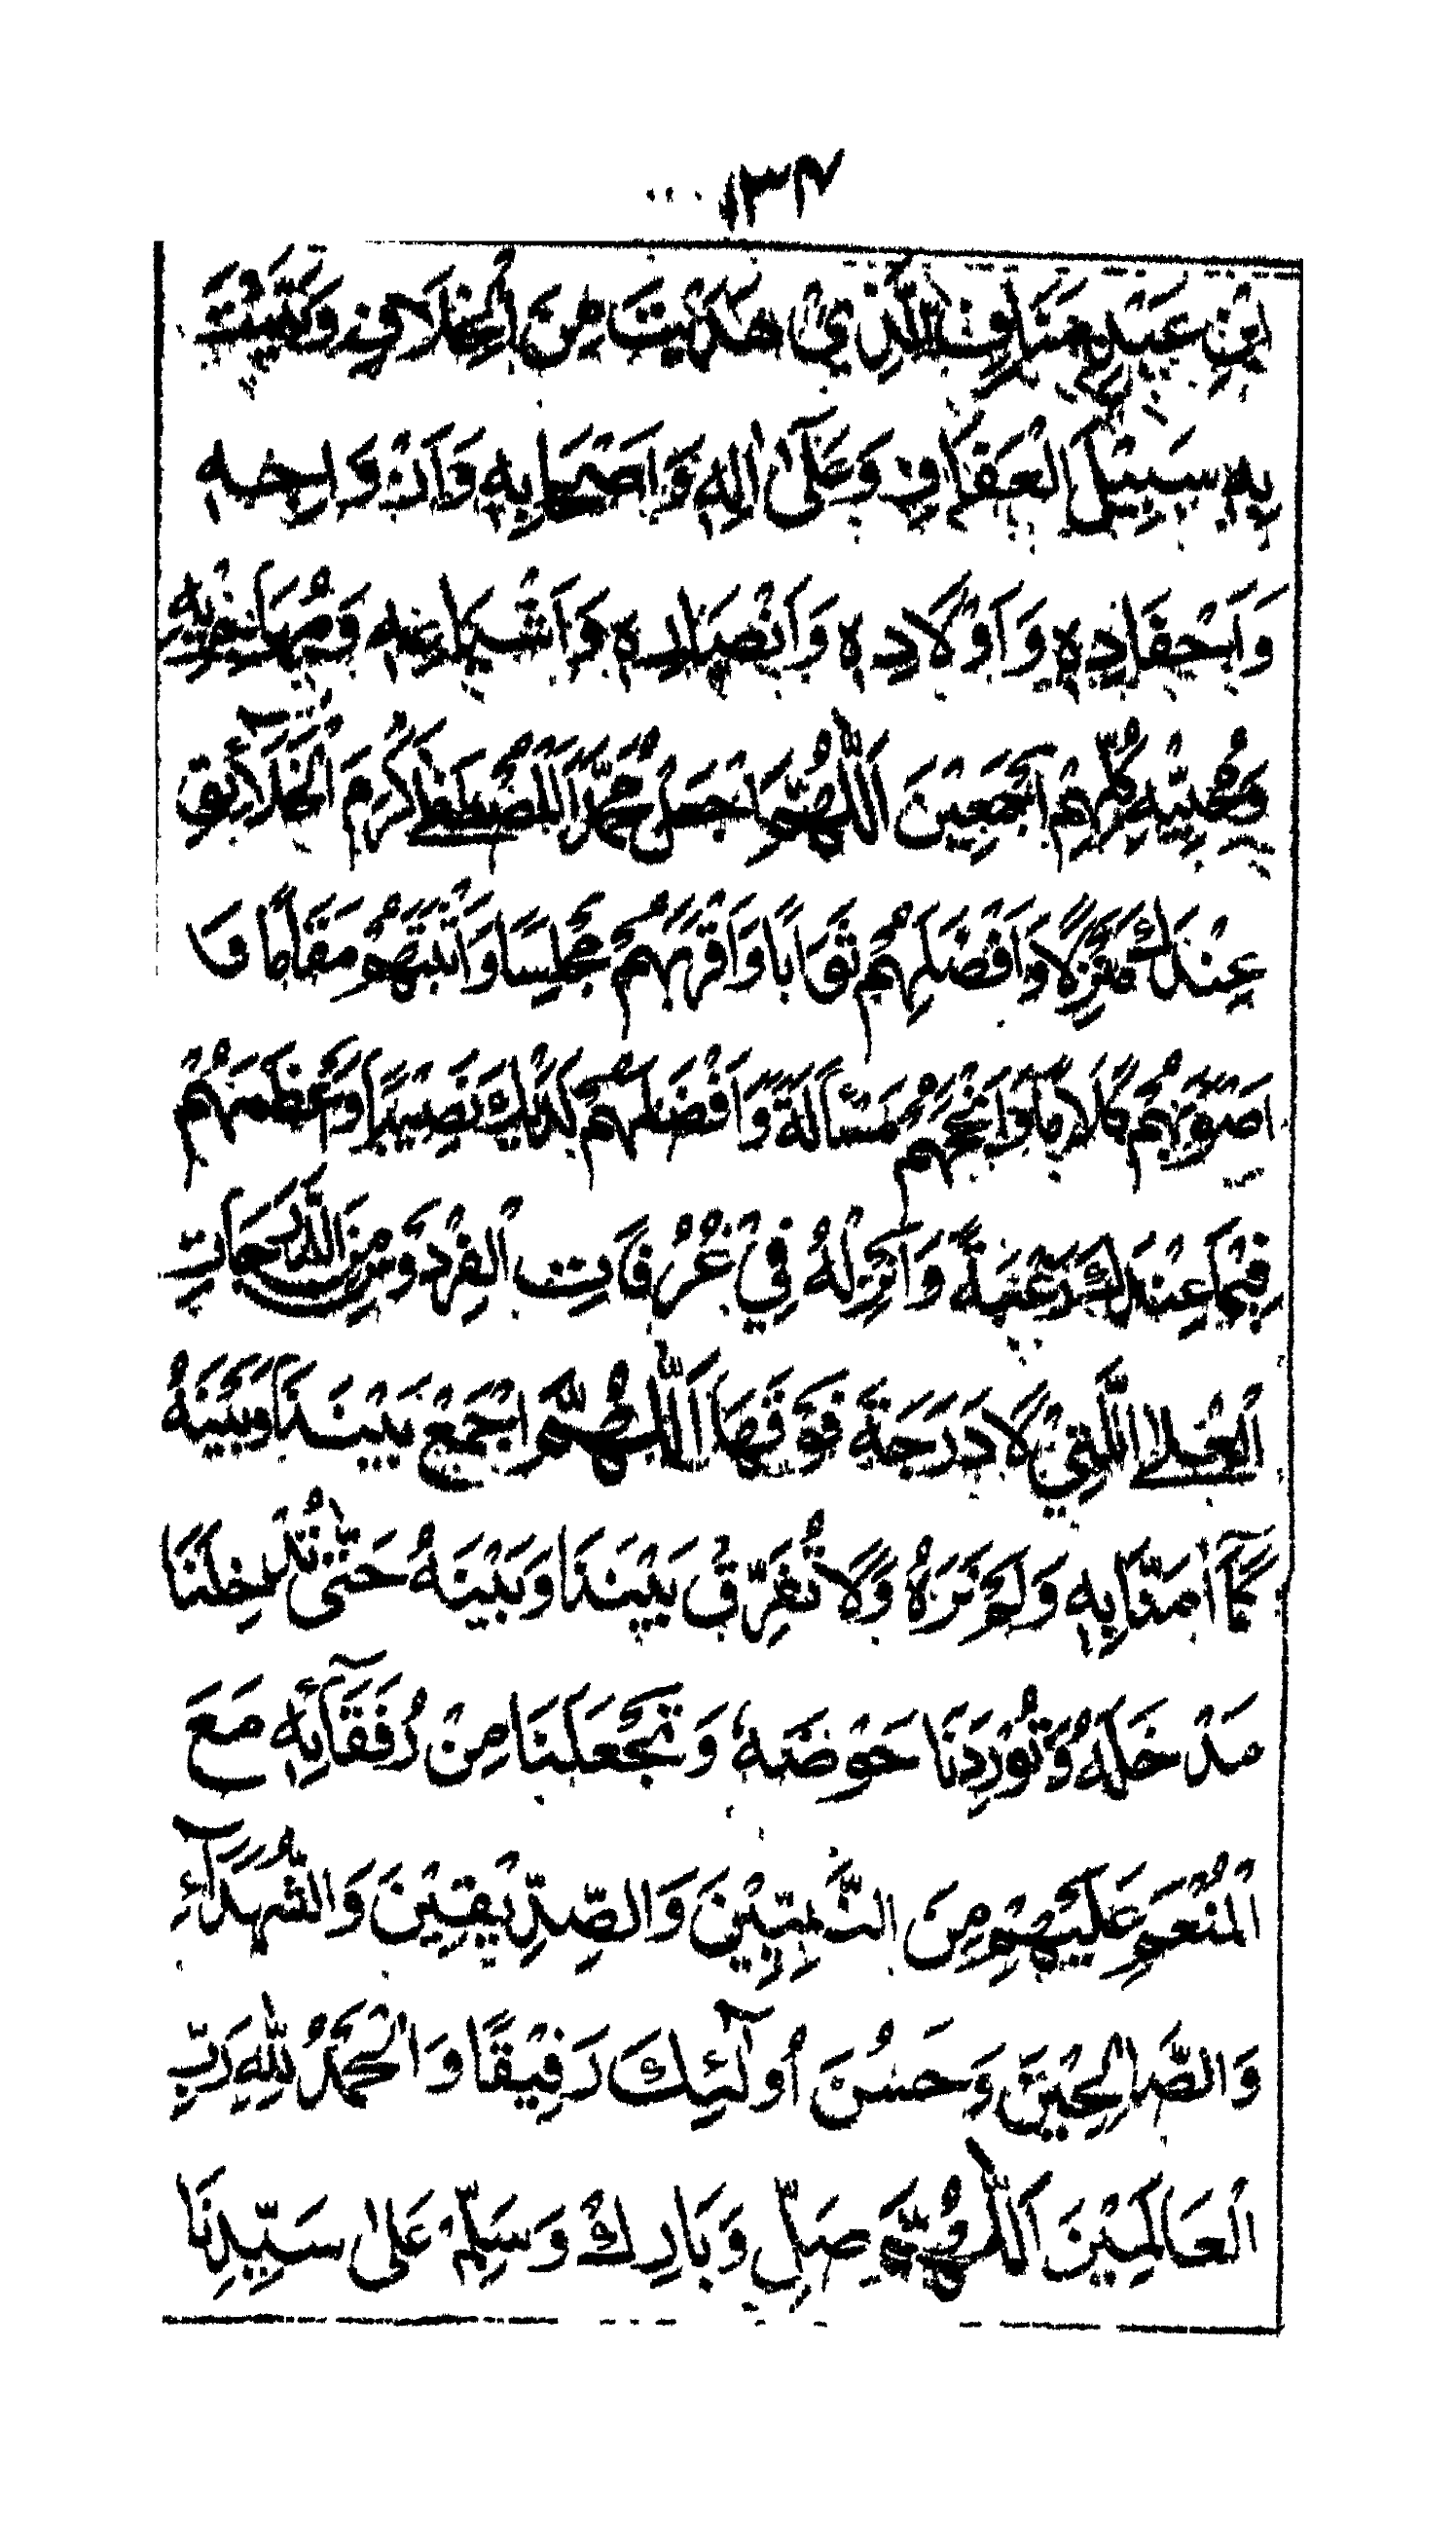 ١٣٤
ابْنِ عَبْدِ مَنَافِ الَّذِيْ هَدَيْتَ مِنَ الْخِلَافِ وَبَيَّنْتَ
بِهٖ سَبِيْلَ الْعَفَافِ وَعَلٰٓى اٰلِهٖ وَاَصْحَابِهٖ وَاَزْوَاجِهٖ
وَاَحْفَادِهٖ وَاَوْلَادِهٖ وَاَنْصَارِهٖ وَاَشْيَاعِهٖ وَمُهَاجِرِيْهِ
وَمُحِبِّيْهِ كُلِّهِمْ اَجْمَعِيْنَ اَللّٰهُمَّ اجْعَلْ مُحَمَّدَا الْمُصْطَفٰى اَكْرَمَ الْخَلَآئِقِ
عِنْدَكَ مَنْزِلًا وَاَفْضَلَهُمْ ثَوَابًا وَاَقْرَبَهُمْ مَجْلِسًا وَاَثْبَتَهُمْ مَقَامًا وَا
اَصْوَبَهُمْ كَلَامًا وَاَنْجَحَهُمْ مَسْأَلَةً وَاَفْضَلَهُمْ لَدَيْكَ نَصِيْبًا وَاَعْظَمَهُمْ
فِيْمَا عِنْدَكَ رَغْبَةً وَاَنْزِلْهُ فِيْ غُرُفَاتِ الْفِرْدَوْسِ مِنَ الدَّرَجَاتِ
الْعُلَى الَّتِيْ لَا دَرَجَةَ فَوْقَهَا اَللّٰهُمَّ اجْمَعْ بَيْنَنَا وَبَيْنَهُ
كَمَآ اٰمَنَّا بِهٖ وَلَمْ نَرَهُ وَلَا تُفَرِّقْ بَيْنَنَا وَبَيْنَهُ حَتّٰى تُدْخِلَنَا
مَدْخَلَهُ وَتُوْرِدَنَا حَوْضَهٗ وَتَجْعَلَنَا مِنْ رُفَقَآئِهٖ مَعَ
الْمُنْعَمِ عَلَيْهِمْ مِنَ النَّبِيِّيْنَ وَالصِّدِّيْقِيْنَ وَالشُّهَدَآءِ
وَالصَّالِحِيْنَ وَحَسُنَ اُولٰٓئِكَ رَفِيْقًا وَالْحَمْدُ لِلّٰهِ رَبِّ
الْعَالَمِيْنَ اَللّٰهُمَّ صَلِّ وَبَارِكْ وَسَلِّمْ عَلٰى سَيِّدِنَا